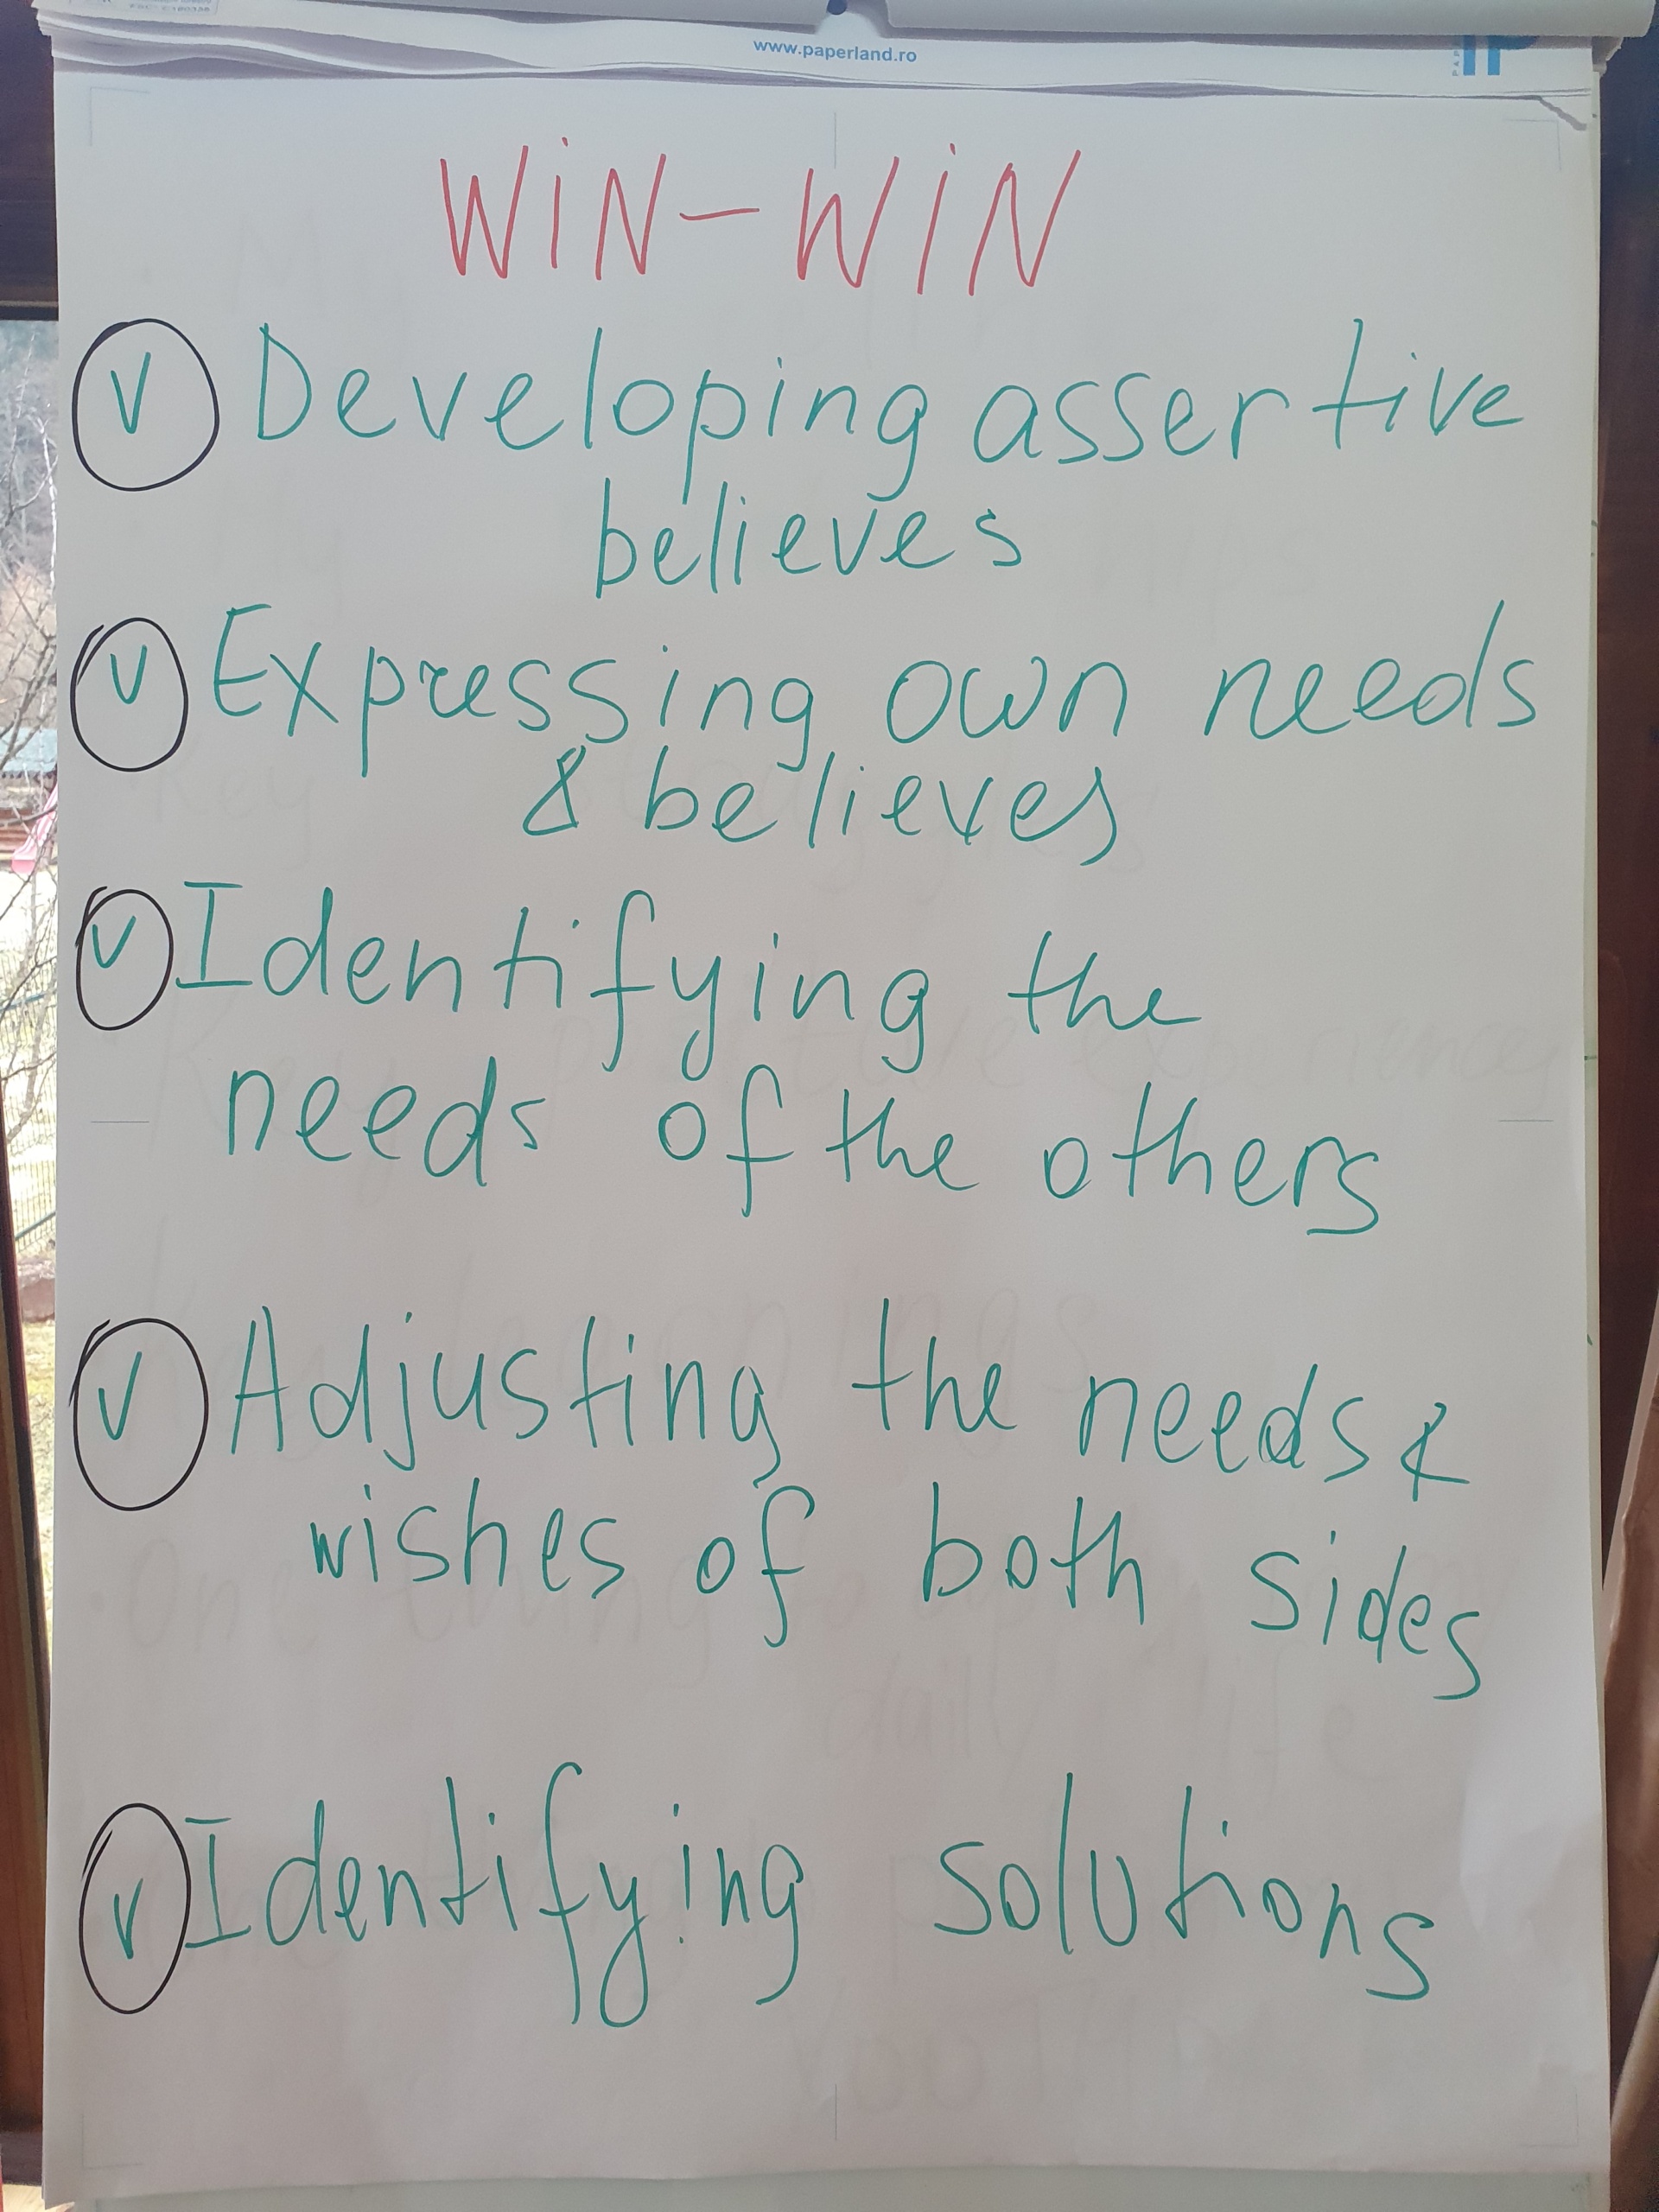 www.paperland.ro
WiN-WiN
v Developing assertive
believes
v Expressing own needs
& believes
v Identifying the
needs of the others
v Adjusting the needs &
wishes of both sides
v Identifying solutions